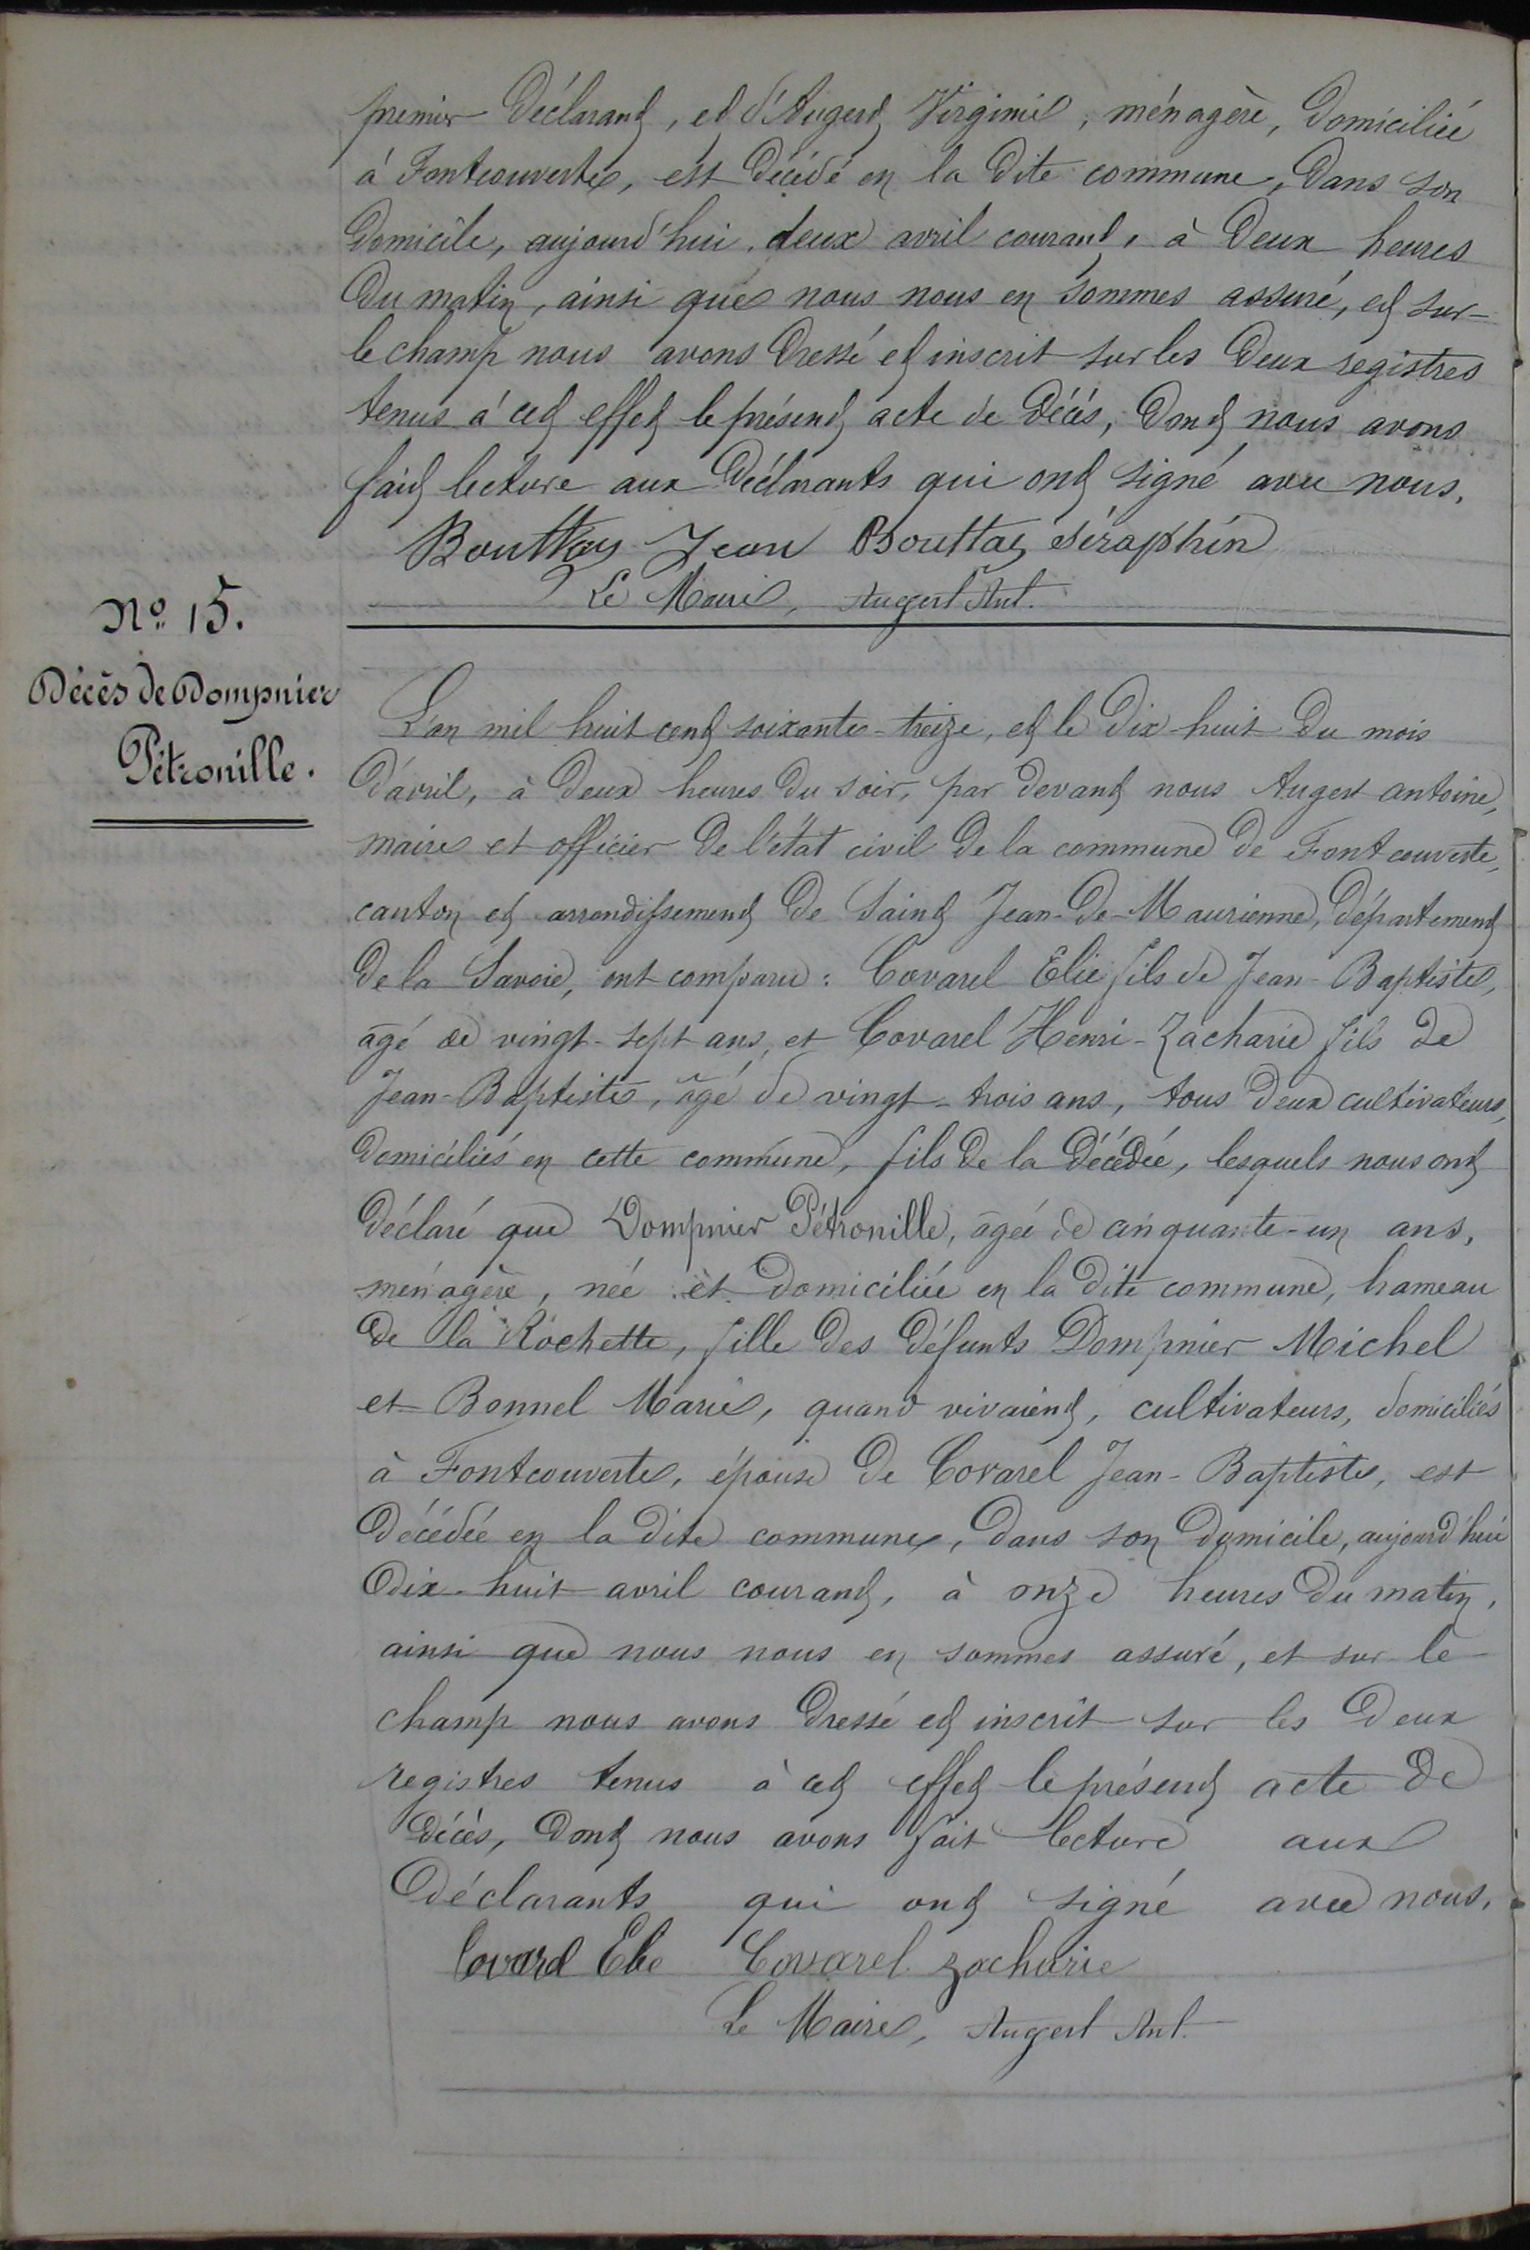 premier déclarant, et d'Augert Virginie, ménagère, domiciliée
à Fontcouverte, est décédé en la dite commune, dans son
domicile, aujourd'hui deux avril courant, à deux heures
du matin, ainsi que nous nous en sommes assuré, et sur-
le champ nous avons dressé et inscrit sur les deux registres
tenus à cet effet le présent acte de décès, dont nous avons
fait lecture aux déclarants qui ont signé avec nous.
Bouttaz Jean Bouttaz Séraphin
Le Maire, Augert Ant.
No. 15.
Décès de Dompnier
Pétronille.
L'an mil huit cent soixante-treize, et le dix-huit du mois
d'avril, à deux heures du soir, par devant nous Augert antoine,
maire et officier de l'état civil de la commune de Fontcouverte,
canton et arrondissement de Saint Jean-de-Maurienne, département
de la Savoie, ont comparu: Covarel Elie fils de Jean-Baptiste,
âgé de vingt-sept ans, et Covarel Henri-Zacharie fils de
Jean-Baptiste, âgé de vingt-trois ans, tous deux cultivateurs,
domiciliés en cette commune, fils de la décédée, lesquels nous ont
déclaré que Dompnier Pétronille, âgée de cinquante-un ans,
ménagère, née et domiciliée en la dite commune, hameau
de la Rochette, fille des défunts Dompnier Michel
et Bonnel Marie, quand vivaient, cultivateurs, domiciliés
à Fontcouverte, épouse de Covarel Jean-Baptiste, est
décédée en la dite commune, dans son domicile, aujourd'hui
dix-huit avril courant, à onze heures du matin,
ainsi que nous nous en sommes assuré, et sur le
champ nous avons dressé et inscrit sur les deux
registres tenus à cet effet le présent acte de
décès, dont nous avons fait lecture aux
déclarants qui ont signé avec nous.
Covarel Elie Covarel zacharie
Le Maire, Augert Ant.